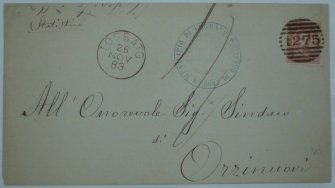 Statistica
LOGRATO
26
NOV
83
275
All' Onorevole Sig. Sindaco
di
Orzinuovi